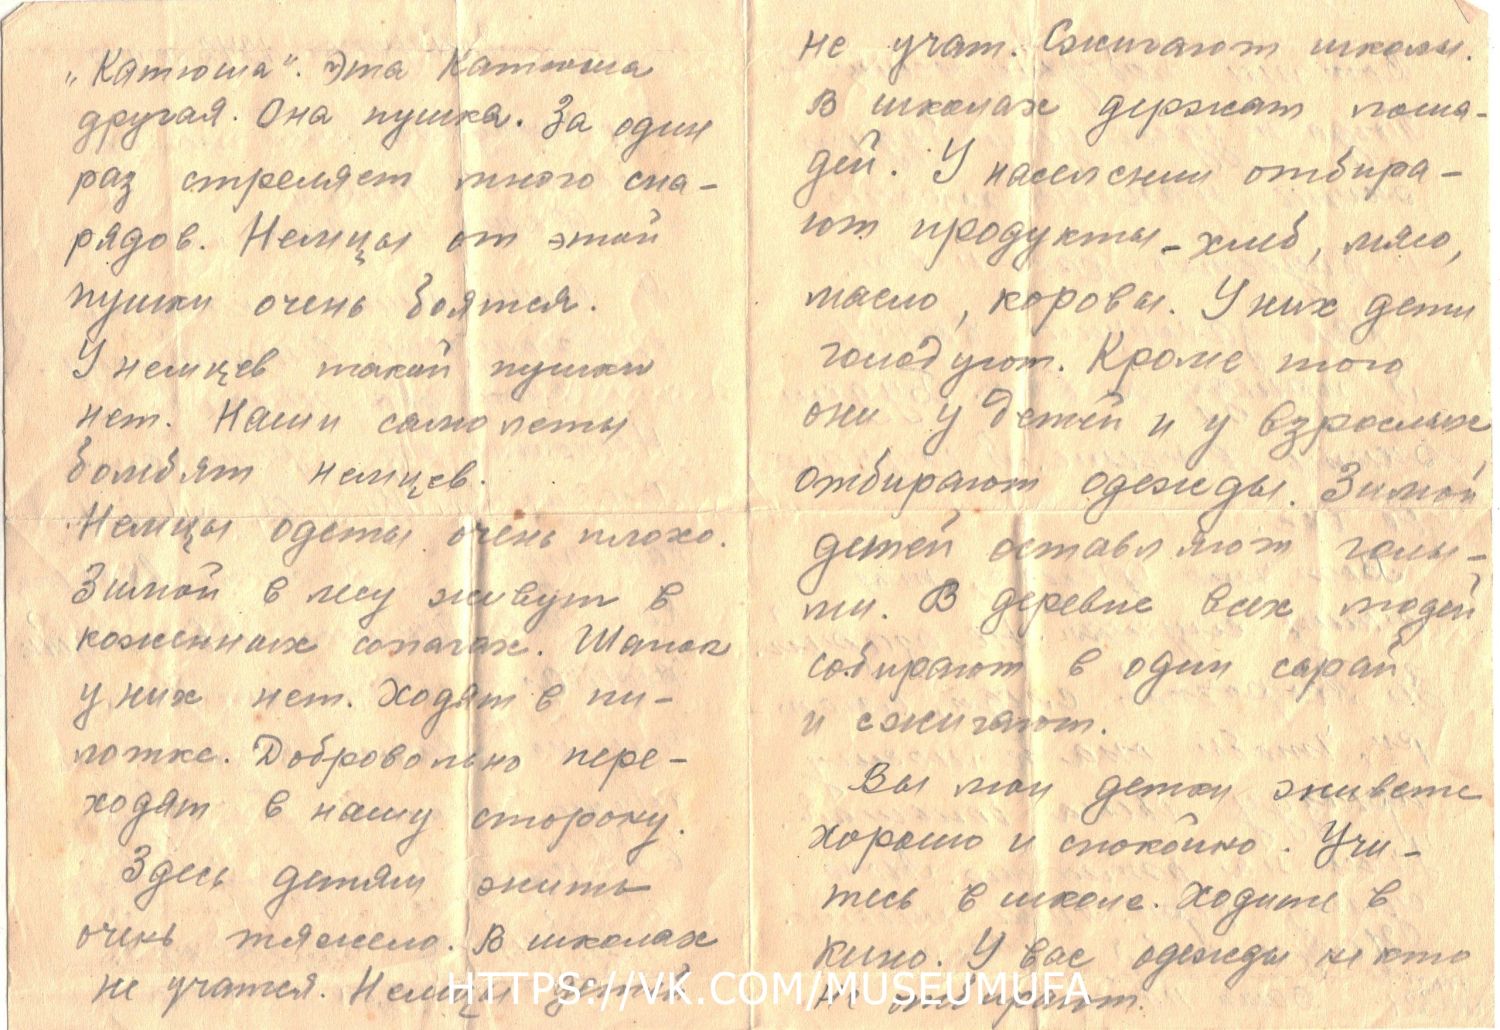 „Катюша“. Эта Катюша
другая. Она пушка. За один
раз стреляет много сна-
рядов. Немцы от этой
пушки очень боятся.
У немцев такой пушки
нет. Наши самолеты
бомбят немцев.
Немцы одеты очень плохо.
Зимой в лесу живут в
коженных сапагах. Шапок
у них нет. Ходят в пи-
лотке. Добровольно пере-
ходят в нашу сторону.
Здесь детям жить
очень тяжело. В школах
не учатся. Немцы детей
не учат. Сжигают школы.
В школах держат лоша-
дей. У населении отбира-
ют продукты - хлеб, мясо,
масло, коровы. У них дети
голодуют. Кроме того
они у детей и у взрослых
отбирают одежды. Зимой
детей оставляют голы-
ми. В деревне всех людей
собирают в один сарай
и сжигают.
Вы мои детки живете
хорошо и спокойно. Учи-
тесь в школе. Ходите в
кино. У вас одежды никто
не отбирают.
HTTPS://VK.COM/MUSEUMUFA